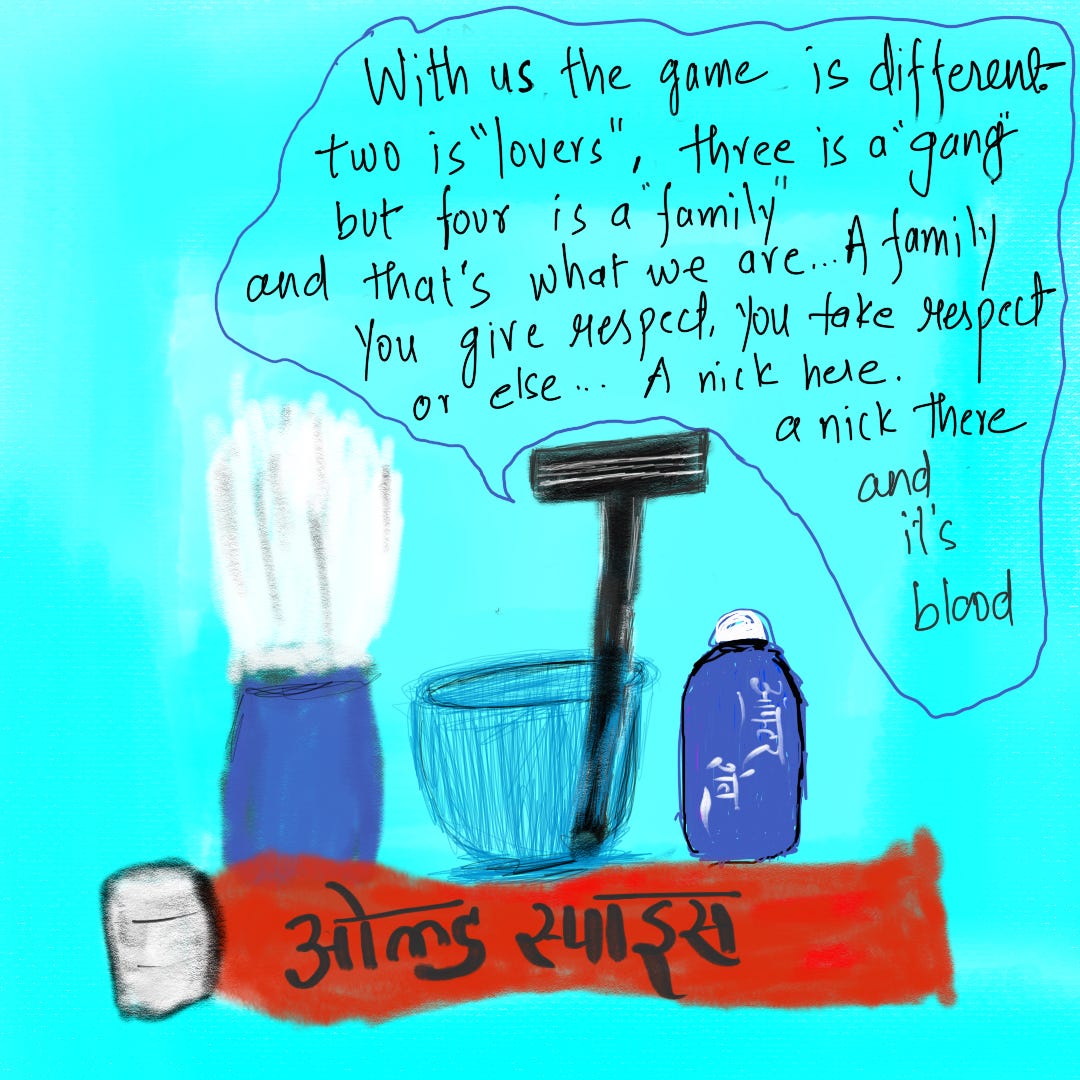 With us the game is different
two is "lovers", three is a "gang"
but four is a "family"
and that's what we are... A family
You give respect, You take respect
or else... A nick here.
a nick there
and
it's
blood
आफ्टर
शेव
ओल्ड स्पाइस